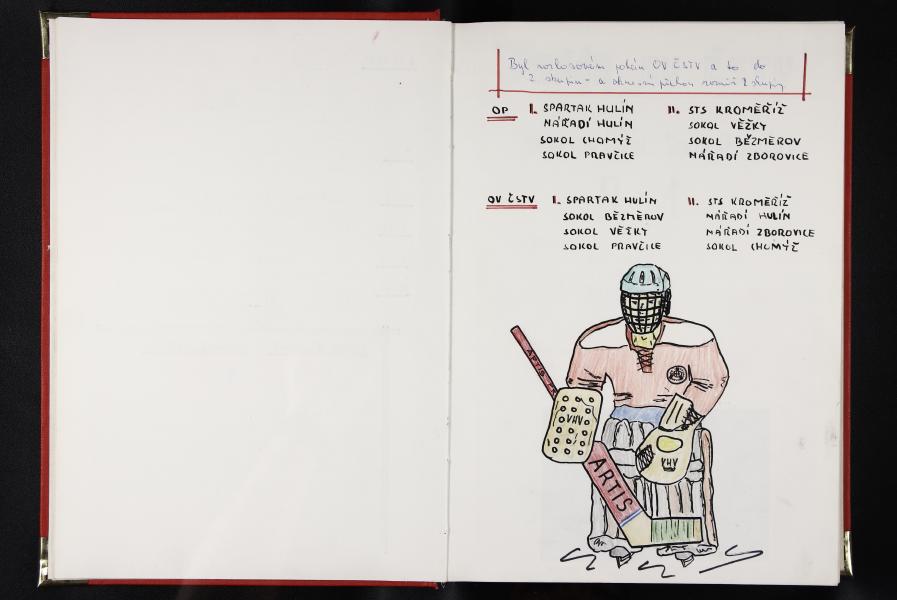 Byl rozlosován pohár OV ČSTV a to do
2 skupin - a okresní přebor rovněž 2 skupiny
OP I. SPARTAK HULÍN II. STS KROMĚŘÍŽ
NÁŘADÍ HULÍN SOKOL VĚŽKY
SOKOL CHOMÝŽ SOKOL BĚZMĚROV
SOKOL PRAVČICE NÁŘADÍ ZBOROVICE
OV ČSTV I. SPARTAK HULÍN II. STS KROMĚŘÍŽ
SOKOL BĚZMĚROV NÁŘADÍ HULÍN
SOKOL VĚŽKY NÁŘADÍ ZBOROVICE
SOKOL PRAVČICE SOKOL CHOMÝŽ
ARTIS
VHV
VHV
ARTIS